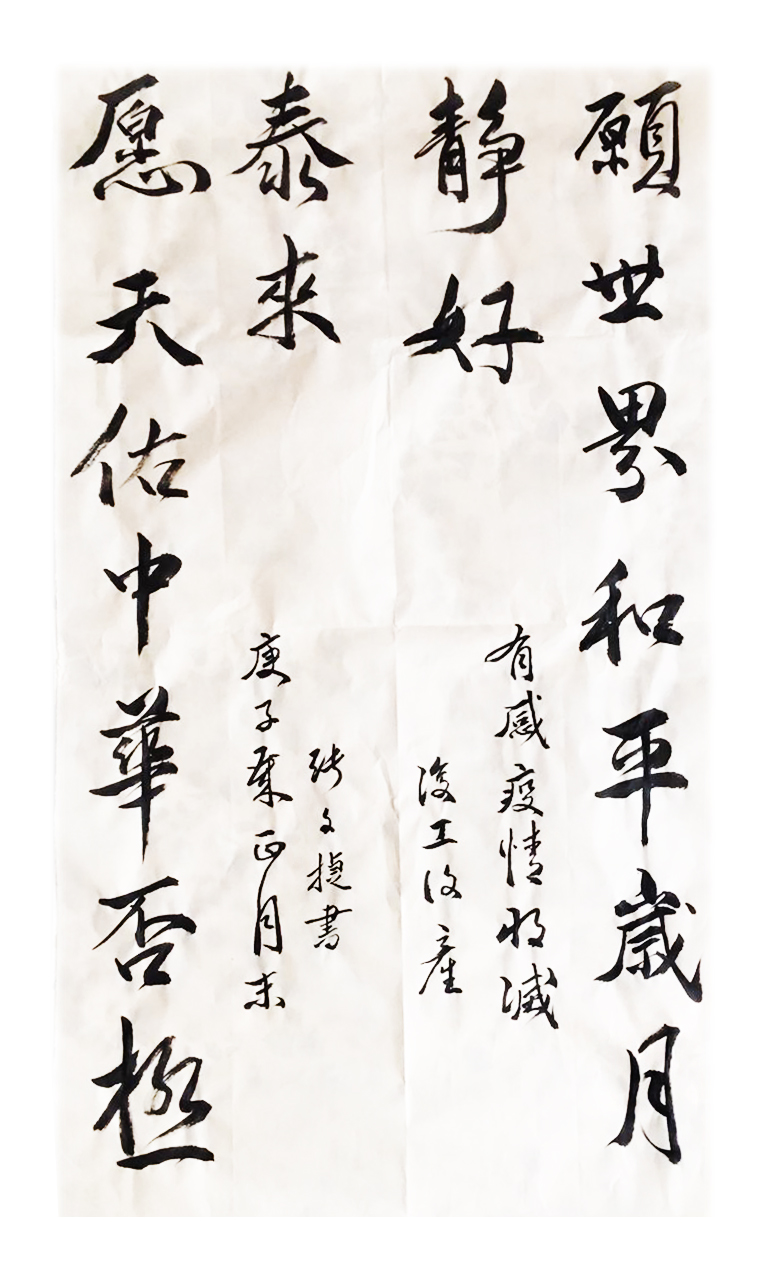 願世界和平歲月
靜好
有感疫情将滅
復工復產
愿天佑中華否極
泰來
庚子秊正月末
張文捷書